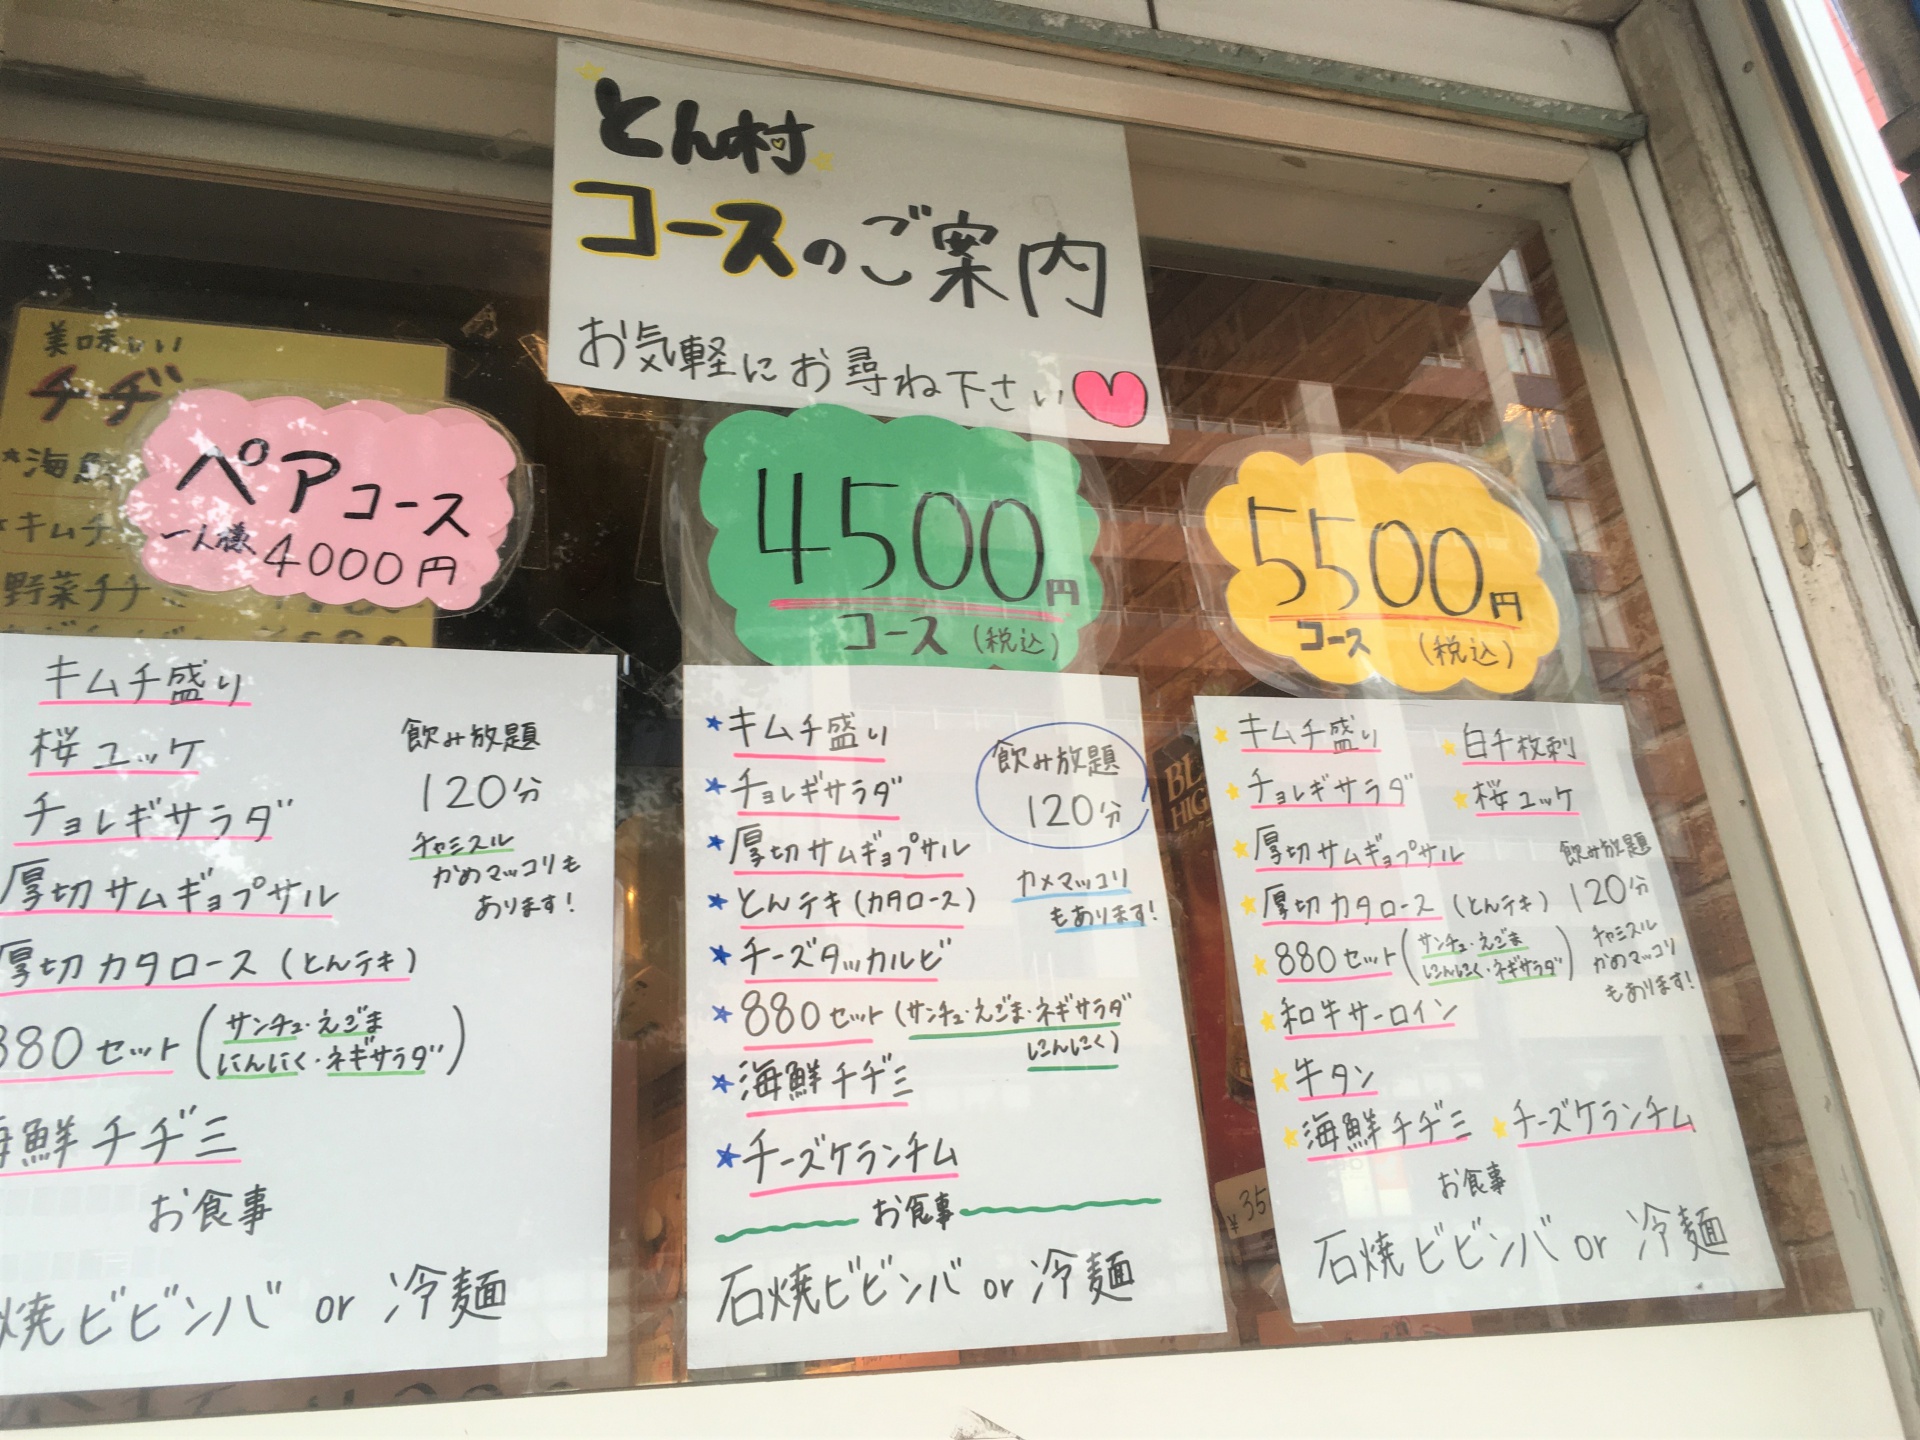 とん村
コースのご案内
お気軽にお尋ね下さい
美味いい
チヂ
キムチ
野菜チヂ
ペアコース
一人様 4000円
キムチ盛り
桜ユッケ
チョレギサラダ
厚切サムギョプサル
厚切カタロース(とんテキ)
880セット(サンチュ・えごま
にんにく・ネギサラダ)
海鮮チヂミ
お食事
焼ビビンバ or 冷麺
飲み放題
120分
チャミスル
かめマッコリも
あります!
4500円
コース (税込)
★キムチ盛り
★チョレギサラダ
★厚切サムギョプサル
★とんテキ(カタロース)
★チーズタッカルビ
★880セット(サンチュ・えごま・ネギサラダ
にんにく)
★海鮮チヂミ
★チーズケランチム
お食事
石焼ビビンバ or 冷麺
飲み放題
120分
カメマッコリ
もあります!
5500円
コース (税込)
★キムチ盛り ★白千枚刺
★チョレギサラダ ★桜ユッケ
★厚切サムギョプサル
★厚切カタロース(とんテキ)
★880セット(サンチュ・えごま
にんにく・ネギサラダ)
★和牛サーロイン
★牛タン
★海鮮チヂミ ★チーズケランチム
お食事
石焼ビビンバ or 冷麺
飲み放題
120分
チャミスル
かめマッコリ
もあります!
¥35